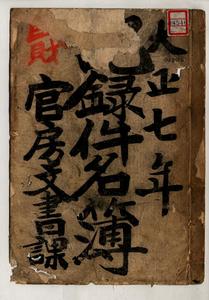 大正七年
記録件名簿
官房文書課
財